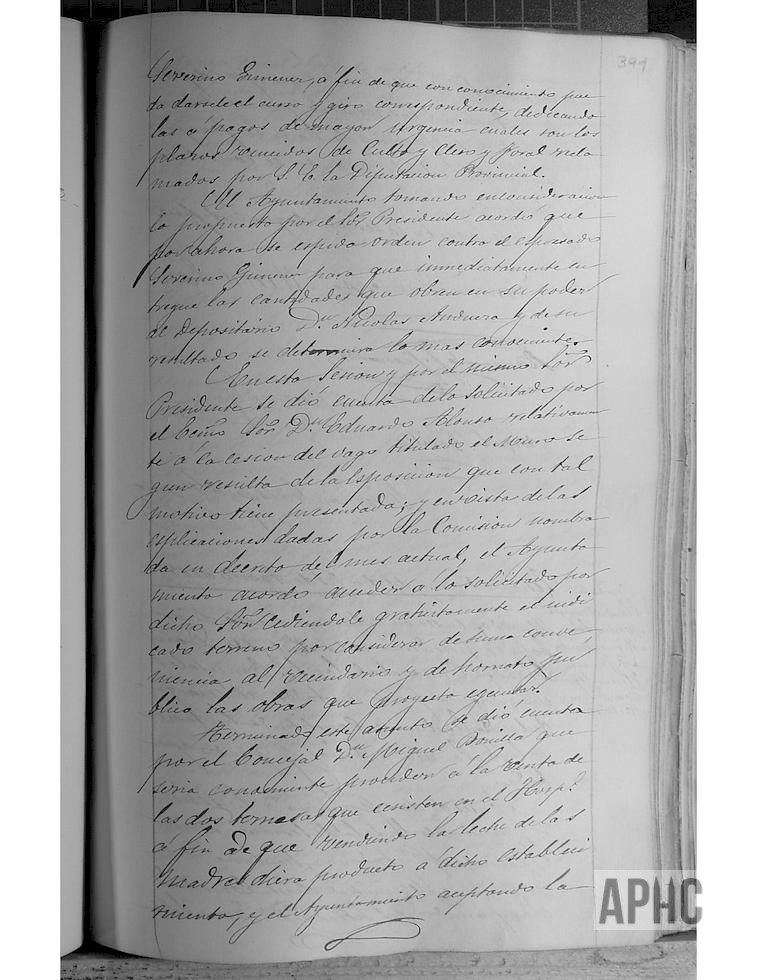 391
Severino Gimener, á fin de que con conocimiento pue
da darsele el curso y giro correspondiente, dedicando
las á pagos de mayor urgencia cuales son los
plazos vencidos de Culto y Clero y Foral recla
mados por S. E. la Diputacion Provincial.
El Ayuntamiento tomando en consideracion
lo propuesto por el Sor Presidente acordó que
por ahora se espida orden contra el espresado
Severino Gimener para que inmediatamente en
tregue las cantidades que obren en su poder
al Depositario Dn Nicolas Anduera y de su
resultado se determinira lo mas conveniente.
En esta Sesion y por el mismo Sor
Presidente se dió cuenta de lo solicitado por
el Ecmo Sor Dn Eduardo Alonso relativamen
te á la cesion del vago titulado el Muro se
gun resulta de la Esposicion que con tal
motivo tiene presentada; y en vista de las
esplicaciones dadas por la Comision nombra
da en decreto del mes actual, el Ayunta
miento acordó acceder á lo solicitado por
dicho Sor cediendole gratuitamente el indi
cado terreno por considerar de suma conve
niencia al vecindario y de hornato pú
blico las obras que proyecta egecutar.
Terminado este asunto se dió cuenta
por el Concejal Dn Miguel Bonilla que
seria conveniente proceder á la venta de
las dos terneras que ecsisten en el Hospl
á fin de que vendiendo la leche de las
madres diera producto á dicho estableci
miento, y el Ayuntamiento aceptando la
APHC